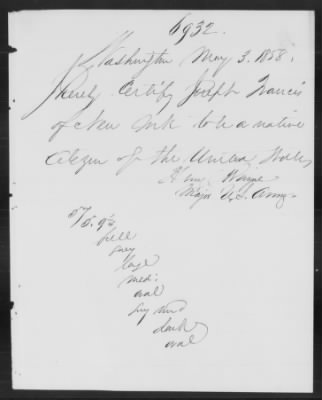 6932.
Washington May 3. 1858.
I hereby Certify Joseph Francis
of New York to be a native
Citizen of the United States
H. Wayne
Major U.S. Army
5/8. 9½
full
grey
large
med:
oval
grey mixd
dark
oval